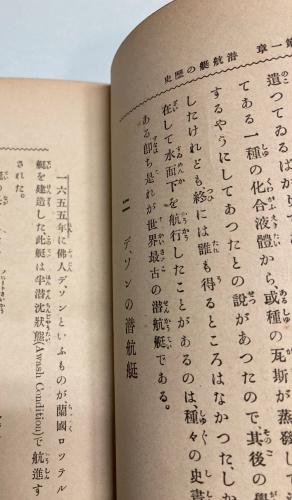 第一章 潜航艇の歴史
遺つてゐるばかり
てある一種の化合液體から、或種の瓦斯が蒸發し
するやうにしてあつたとの說があつたので、其後の學
したけれども終には誰も得るところはなかつた、し
在して水面下を航行したことがあるのは、種々の史書
ある卽ち是れが世界最古の潜航艇である。
二 デ、ソンの潜航艇
一六五五年に佛人デソンといふものが蘭國ロツテル
艇を建造した、此艇は半潜沈狀態(Awash Condition)で航進す
された。